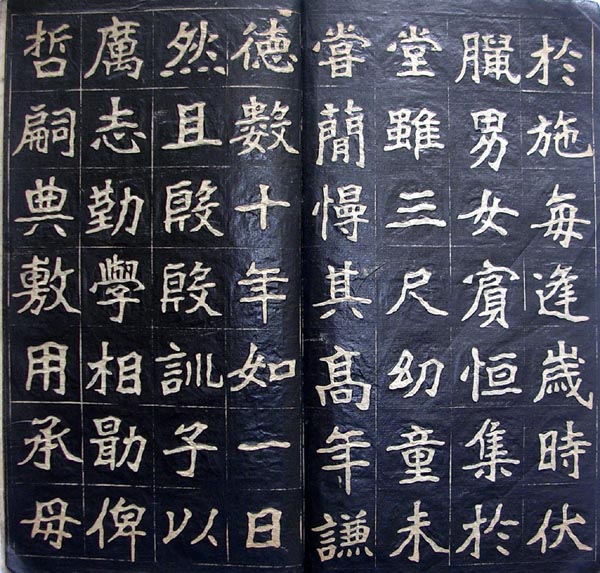 於施每逢歲時伏
臘男女賔恒集於
堂雖三尺幼童未
嘗蕳慢其髙年謙
徳數十年如一日
然且殷殷訓子以
厲志勤學相勖俾
哲嗣典敷用承母